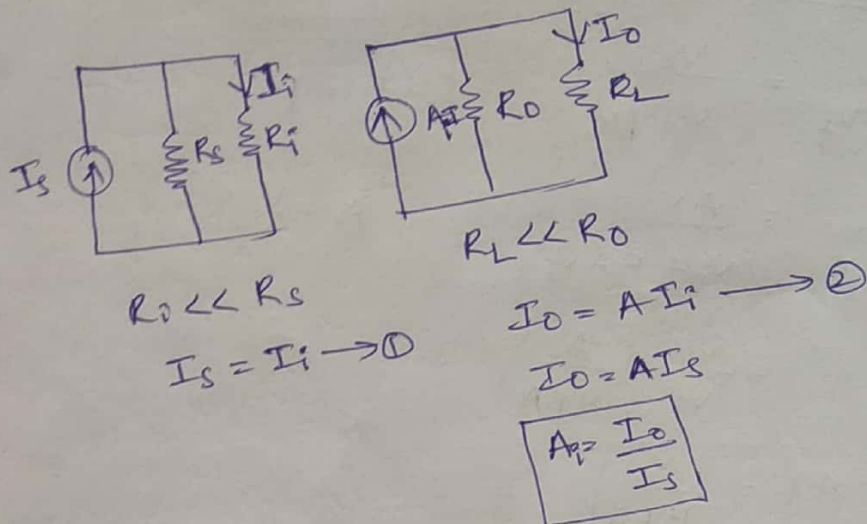 Is Rs Ii Ri
AiIi Ro Io RL
Ri << Rs
Is = Ii → ①
RL << Ro
Io = AIi → ②
Io = AIs
Ai = Io / Is